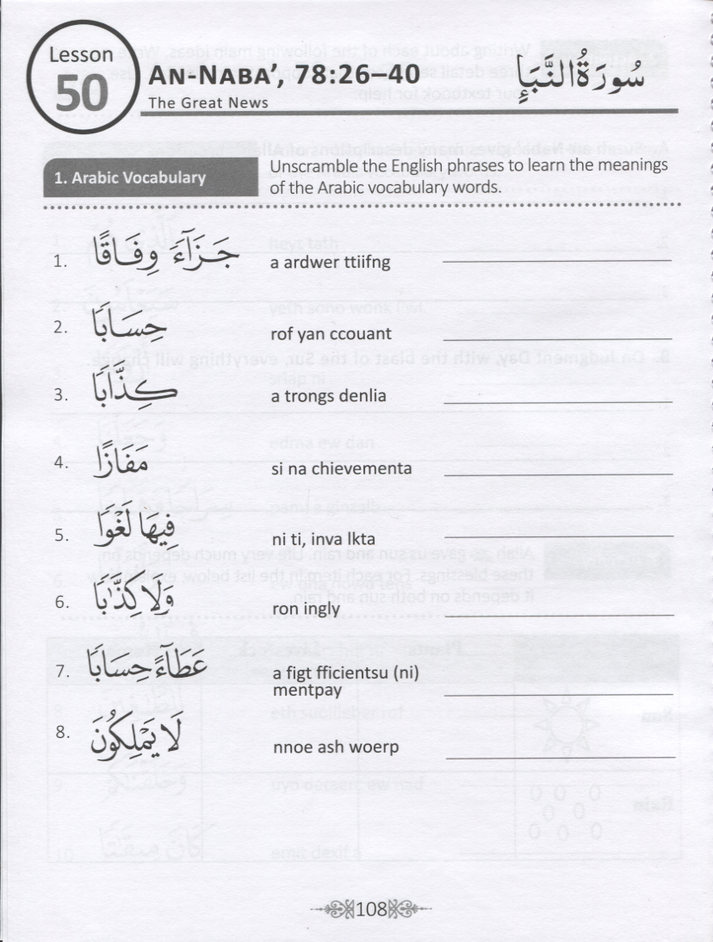 Lesson
50
AN-NABA’, 78:26–40
The Great News
سُورَةُ النَّبَإِ
1. Arabic Vocabulary
Unscramble the English phrases to learn the meanings
of the Arabic vocabulary words.
1. جَزَآءً وِفَاقًا a ardwer ttiifng
2. حِسَابًا rof yan ccouant
3. كِذَّابًا a trongs denlia
4. مَفَازًا si na chievementa
5. فِيهَا لَغْوًا ni ti, inva lkta
6. وَلَا كِذَّٰبًا ron ingly
7. عَطَآءً حِسَابًا a figt fficientsu (ni)
mentpay
8. لَا يَمْلِكُونَ nnoe ash woerp
108